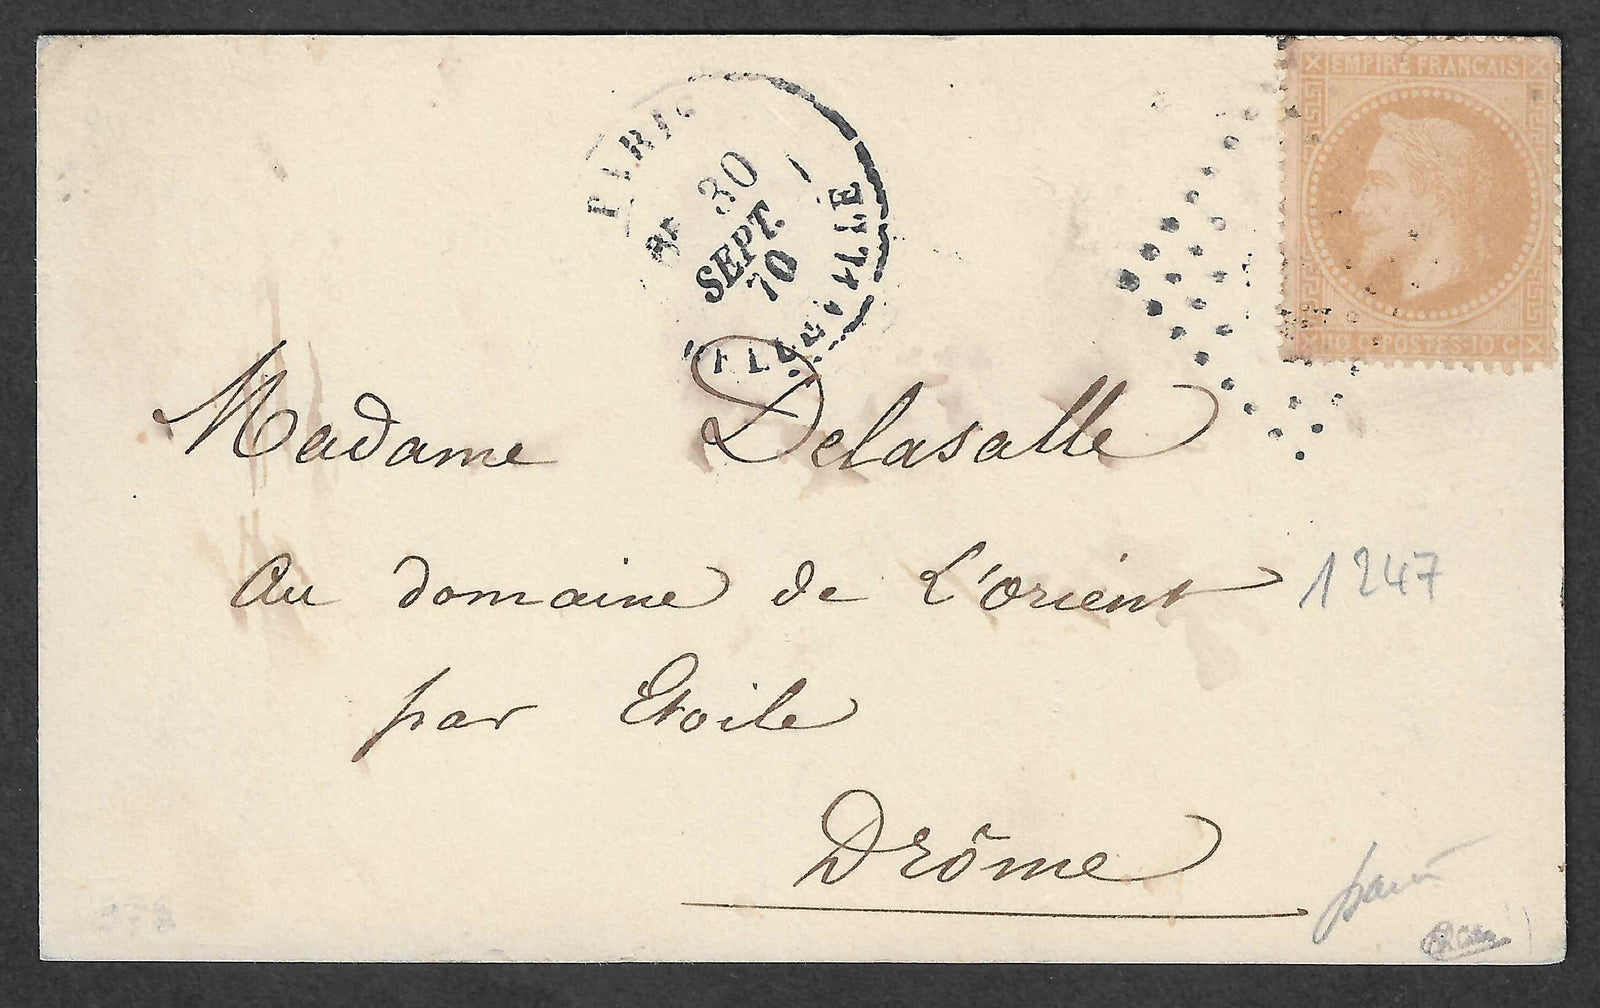 EMPIRE FRANÇAIS
10 C POSTES 10 C
PARIS
30
SEPT.
70
Madame Delasalle
au domaine de L'orient
1247
par Etoile
Drôme